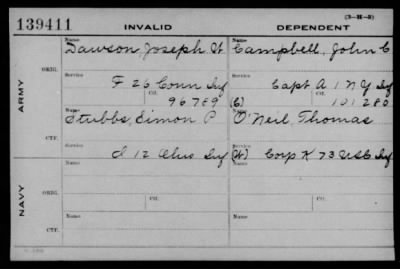 139411
INVALID
DEPENDENT
(3-H-8)
ARMY
ORIG.
Name
Dawson, Joseph W.
Name
Campbell, John C
Service
F 26 Conn Inf
Service
Capt A 1 N Y Inf
Ctf.
96789
(C)
Ctf.
101280
CTF.
Name
Stubbs, Simon P
Name
O'Neil, Thomas
Service
I 12 Ohio Inf
(W) Corp K 73 Inf
NAVY
ORIG.
Name
Name
Ctf.
Ctf.
CTF.
Name
Name